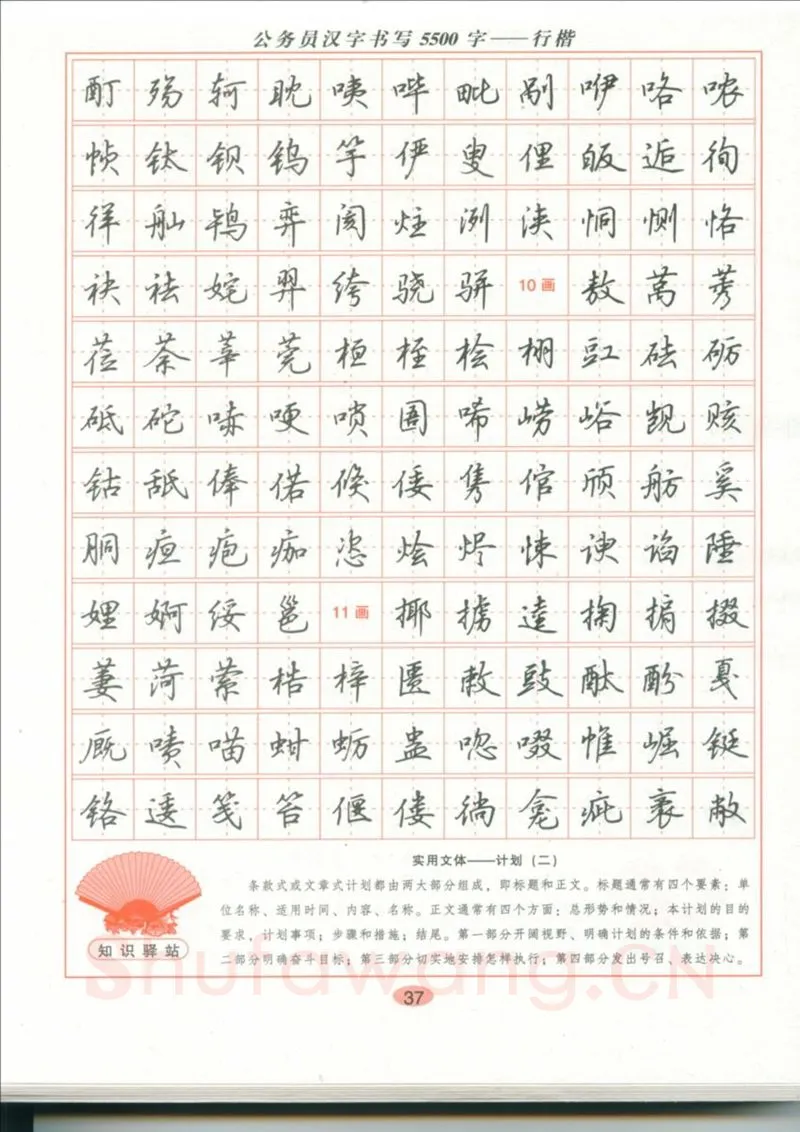 公务员汉字书写5500字——行楷
酊 殇 轲 耽 咦 哔 毗 剐 咿 咯 哝
帧 钛 钡 钨 竽 俨 叟 俚 皈 逅 徇
徉 舢 鸨 弈 阂 炷 洌 浃 恫 恻 恪
袂 祛 姹 羿 绔 骁 骈 10画 敖 莴 莠
莅 荼 莘 莞 桓 桎 桧 栩 豇 砝 砺
砥 砣 哧 哽 唢 圄 唏 崂 峪 觊 赅
钴 舐 俸 偌 候 倭 隽 倌 颀 舫 奚
胴 疸 疱 痂 恣 烩 烬 悚 谀 谄 陲
娌 婀 绥 邕 11画 揶 掳 逵 掬 掮 掇
萋 菏 萦 梏 梓 匿 敕 豉 酞 酚 戛
厩 啧 喵 蚶 蛎 蛊 唿 啜 惟 崛 铤
铬 逶 笺 笞 偃 偻 徜 龛 疵 袤 敝
实用文体——计划（二）
条款式或文章式计划都由两大部分组成，即标题和正文。标题通常有四个要素：单
位名称、适用时间、内容、名称。正文通常有四个方面：总形势和情况；本计划的目的
要求，计划事项；步骤和措施；结尾。第一部分开阔视野、明确计划的条件和依据；第
二部分明确奋斗目标；第三部分切实地安排怎样执行；第四部分发出号召、表达决心。
知识驿站
Shufawang.CN
37